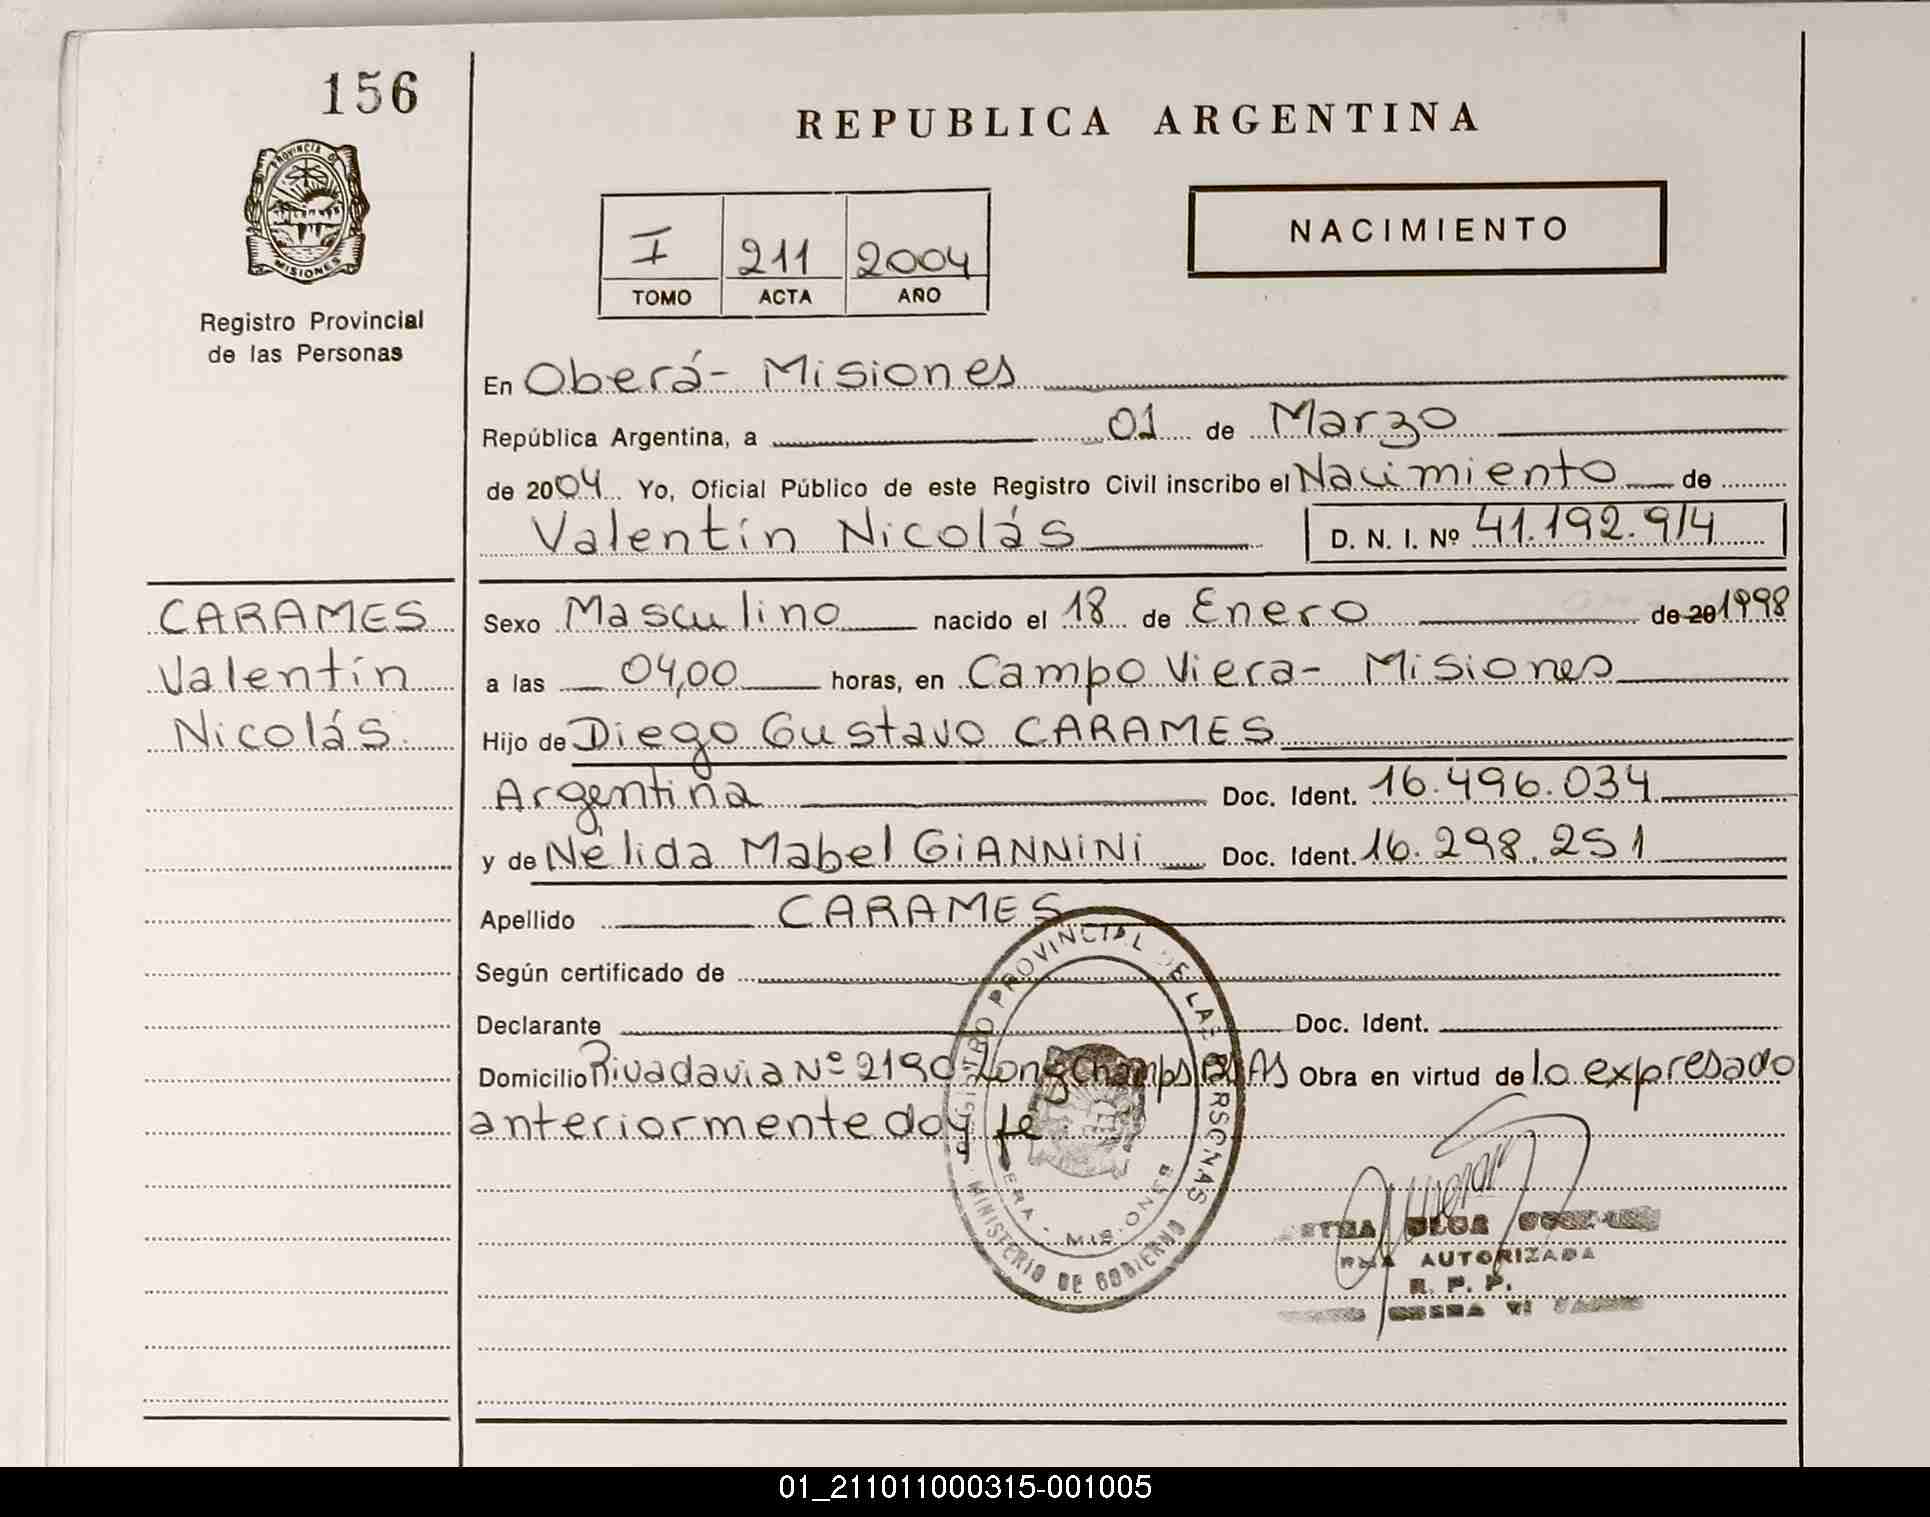 156
REPUBLICA ARGENTINA
PROVINCIA DE
MISIONES
Registro Provincial
de las Personas
I 211 2004
TOMO ACTA AÑO
NACIMIENTO
En Oberá- Misiones
República Argentina, a 01 de Marzo
de 2004 Yo, Oficial Público de este Registro Civil inscribo el Nacimiento de
Valentín Nicolás D. N. I. Nº 41.192.914
CARAMES
Valentín
Nicolás.
Sexo Masculino nacido el 18 de Enero de 20 1998
a las 04,00 horas, en Campo Viera- Misiones
Hijo de Diego Gustavo CARAMES
Argentina Doc. Ident. 16.496.034
y de Nélida Mabel GIANNINI Doc. Ident. 16.298.251
Apellido CARAMES
Según certificado de
Declarante Doc. Ident.
Domicilio Rivadavia Nº 2190-Longchamps BsAs Obra en virtud de lo expresado
anteriormente doy fe
PROVINCIAL DE LAS PERSONAS
MINISTERIO DE GOBIERNO
MISIONES
AUTORIZADA
R. P. P.
01_211011000315-001005